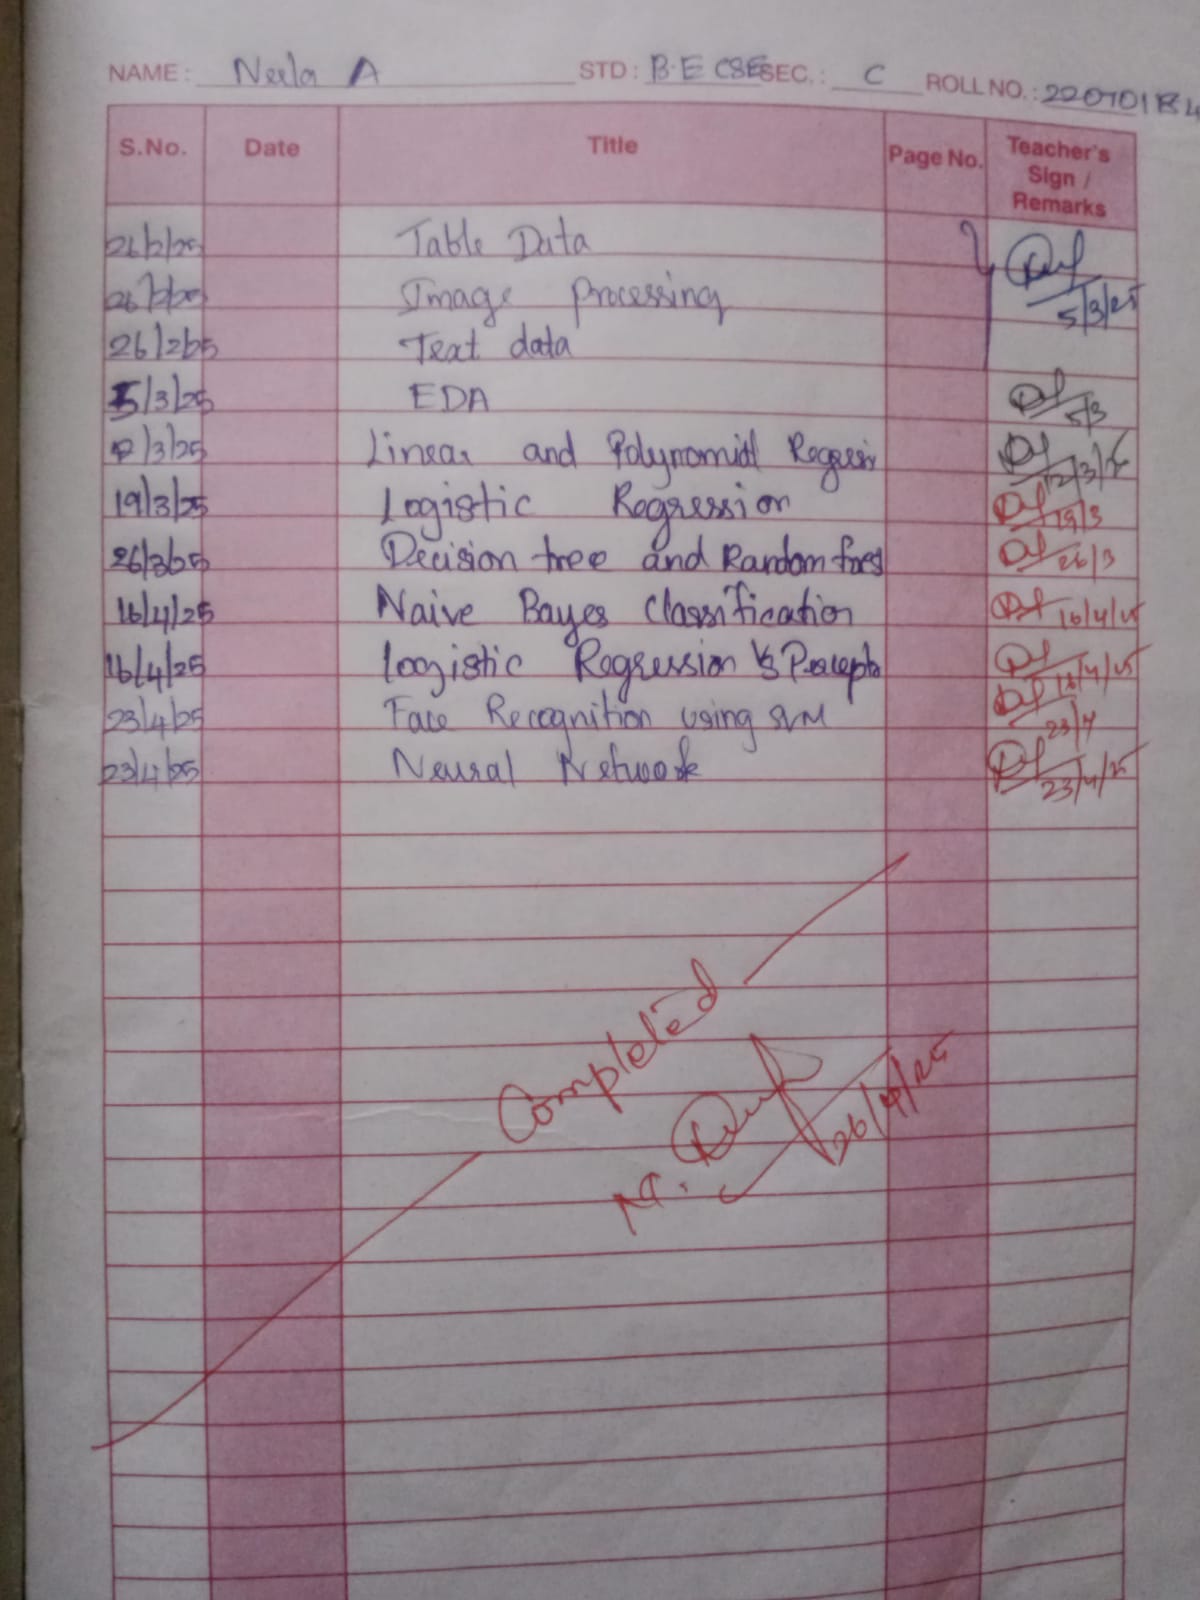 NAME: Neela A STD: B.E CSE SEC.: C ROLL NO.: 220701184
S.No. Date Title Page No. Teacher's Sign / Remarks
26/2/25 Table Data
26/2/25 Image Processing 5/3/25
26/2/25 Text data
5/3/25 EDA 5/3
/3/25 Linear and Polynomial Regressi 12/3/25
19/3/25 Logistic Regression 19/3
26/3/25 Decision tree and Random forest 26/3
16/4/25 Naive Bayes Classification 16/4/25
16/4/25 Logistic Regression Vs Percepto 16/4/25
23/4/25 Face Recognition using SVM 23/4
23/4/25 Neural Network 23/4/25
Completed
26/4/25